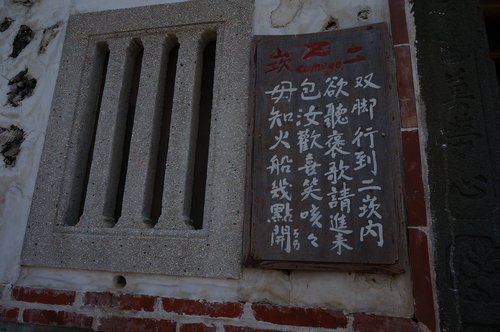 二崁
双脚行到二崁內
欲聽褒歌請進来
包汝歡喜笑咳々
毋知火船幾點開